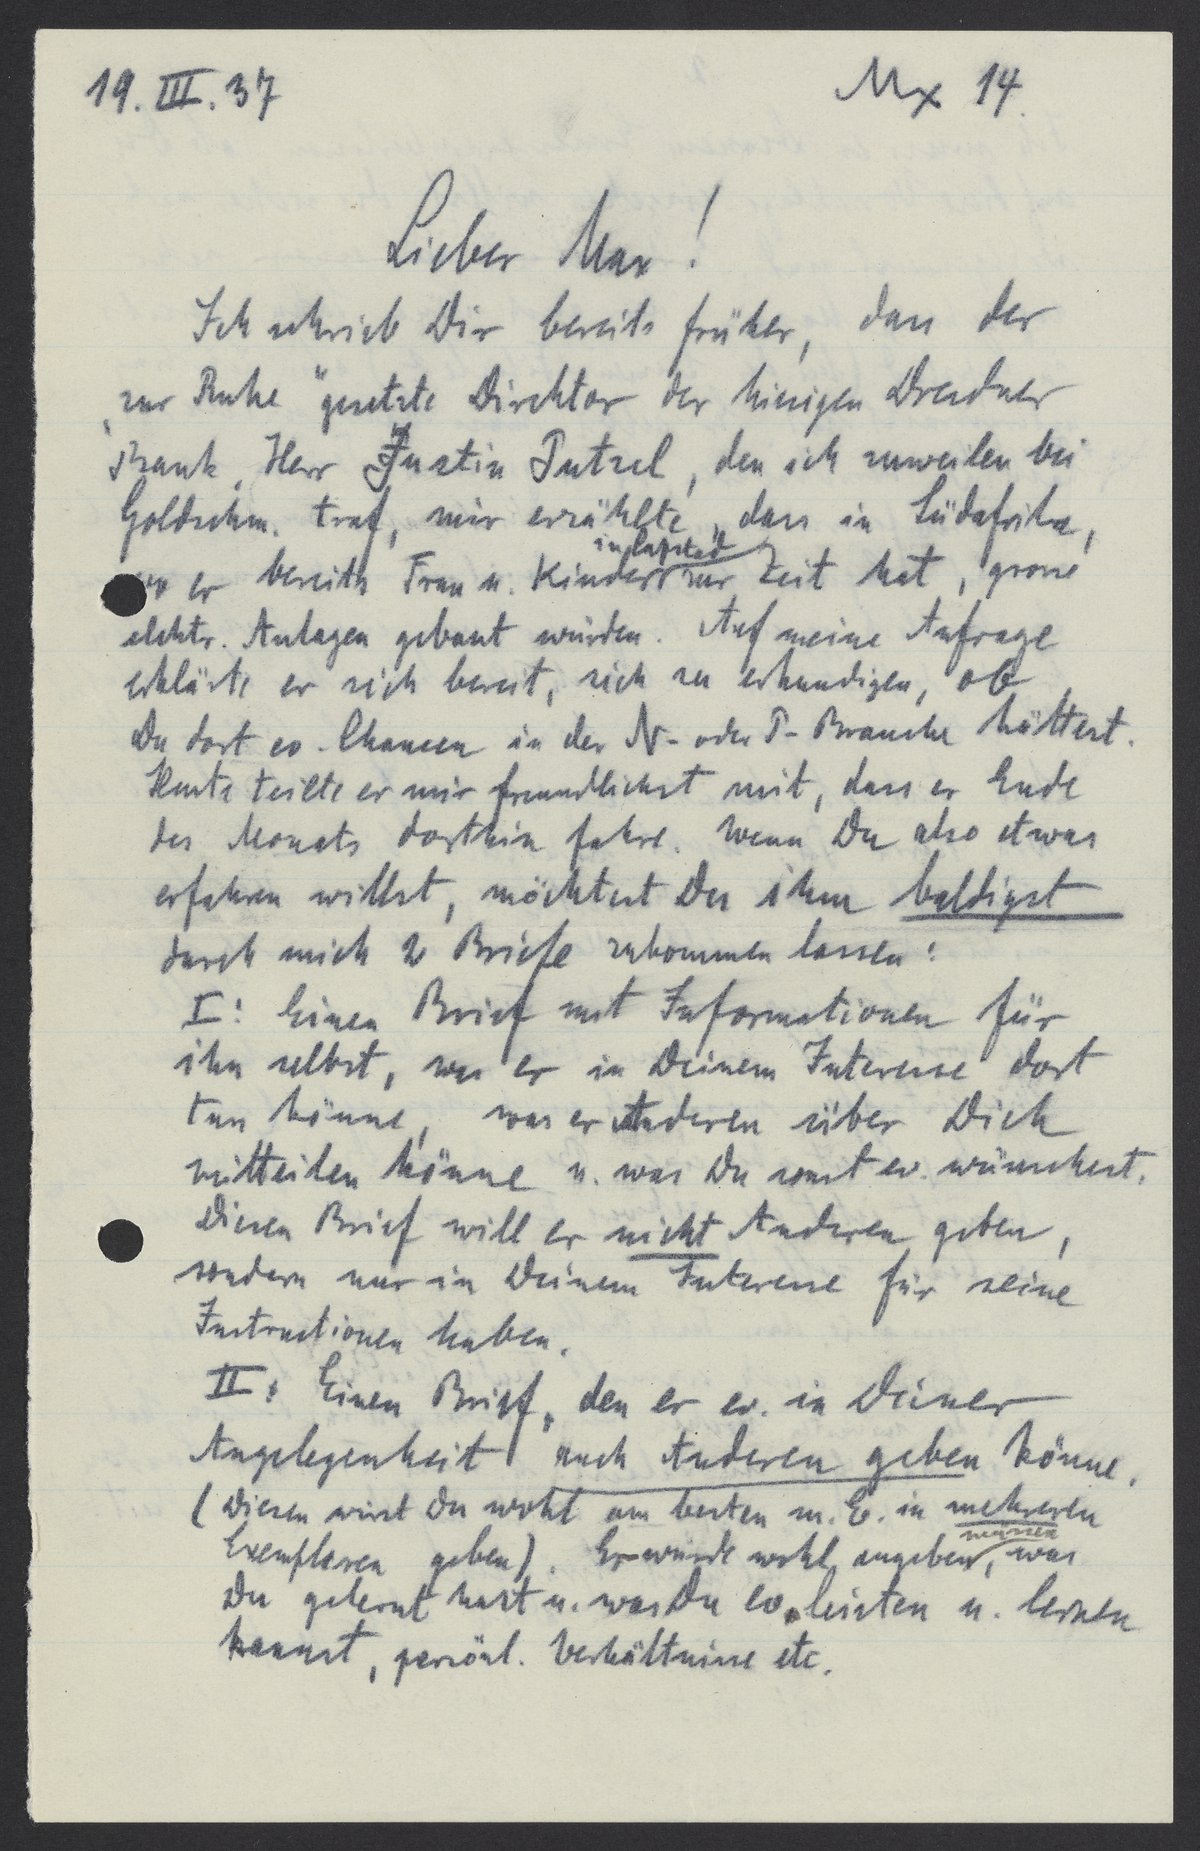 19. III. 37
Mx 14.
Lieber Max!
Ich schrieb Dir bereits früher, dass der
„zur Ruhe" gesetzte Direktor der hiesigen Dresdner
Bank, Herr Justin Putzel, den ich zuweilen bei
Goldschm. traf, mir erzählte, dass in Südafrika,
wo er bereits Frau u. Kinder in Capstad zur Zeit hat, grosse
elektr. Anlagen gebaut würden. Auf meine Anfrage
erklärte er sich bereit, sich zu erkundigen, ob
Du dort ev. Chancen in der N- oder P- Branche hättest.
Heute teilte er mir freundlichst mit, dass er Ende
des Monats dorthin fahre. Wenn Du also etwas
erfahren willst, möchtest Du ihm baldigst
durch mich 2 Briefe zukommen lassen:
I: Einen Brief mit Informationen für
ihn selbst, was er in Deinem Interesse dort
tun könne, was er Anderen über Dich
mitteilen könne u. was Du sonst ev. wünschest.
Diesen Brief will er nicht Anderen geben,
sondern nur in Deinem Interesse für seine
Instructionen haben.
II: Einen Brief, den er ev. in Deiner
Angelegenheit auch Anderen geben könne.
(Diesen wirst Du wohl am besten m. E. in mehreren
Exemplaren geben). Er würde wohl angeben müssen, was
Du gelernt hast u. was Du ev. leisten u. lernen
kannst, persönl. Verhältnisse etc.